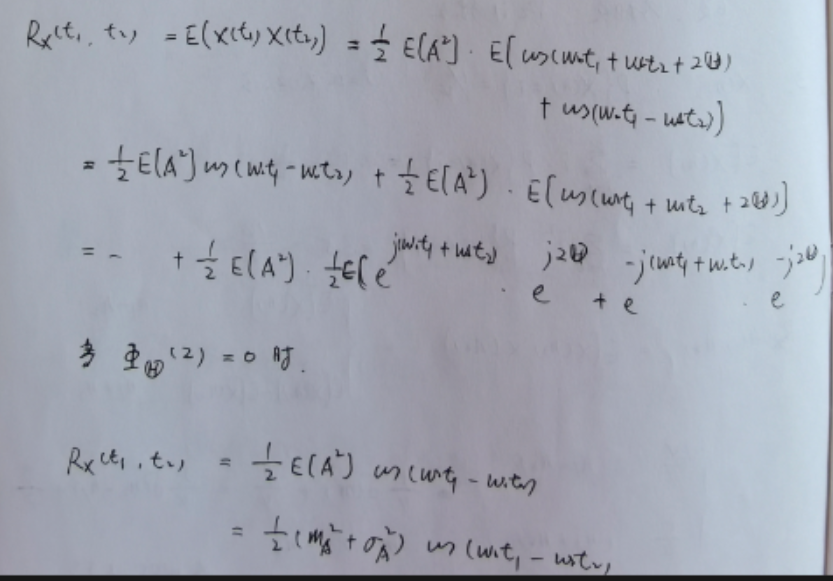 Rx(t₁, t₂) = E(X(t₁) X(t₂)) = 1/2 E[A²] · E[cos(ω₀t₁ + ω₀t₂ + 2Θ)
+ cos(ω₀t₁ - ω₀t₂)]
= 1/2 E[A²] cos(ω₀t₁ - ω₀t₂) + 1/2 E[A²] · E[cos(ω₀t₁ + ω₀t₂ + 2Θ)]
= - + 1/2 E[A²] · 1/2 E[e^{j(ω₀t₁ + ω₀t₂)} · e^{j2Θ} + e^{-j(ω₀t₁ + ω₀t₂)} · e^{-j2Θ}]
当 Φ_Θ(2) = 0 时.
Rx(t₁, t₂) = 1/2 E[A²] cos(ω₀t₁ - ω₀t₂)
= 1/2 (m_A² + σ_A²) cos(ω₀t₁ - ω₀t₂)